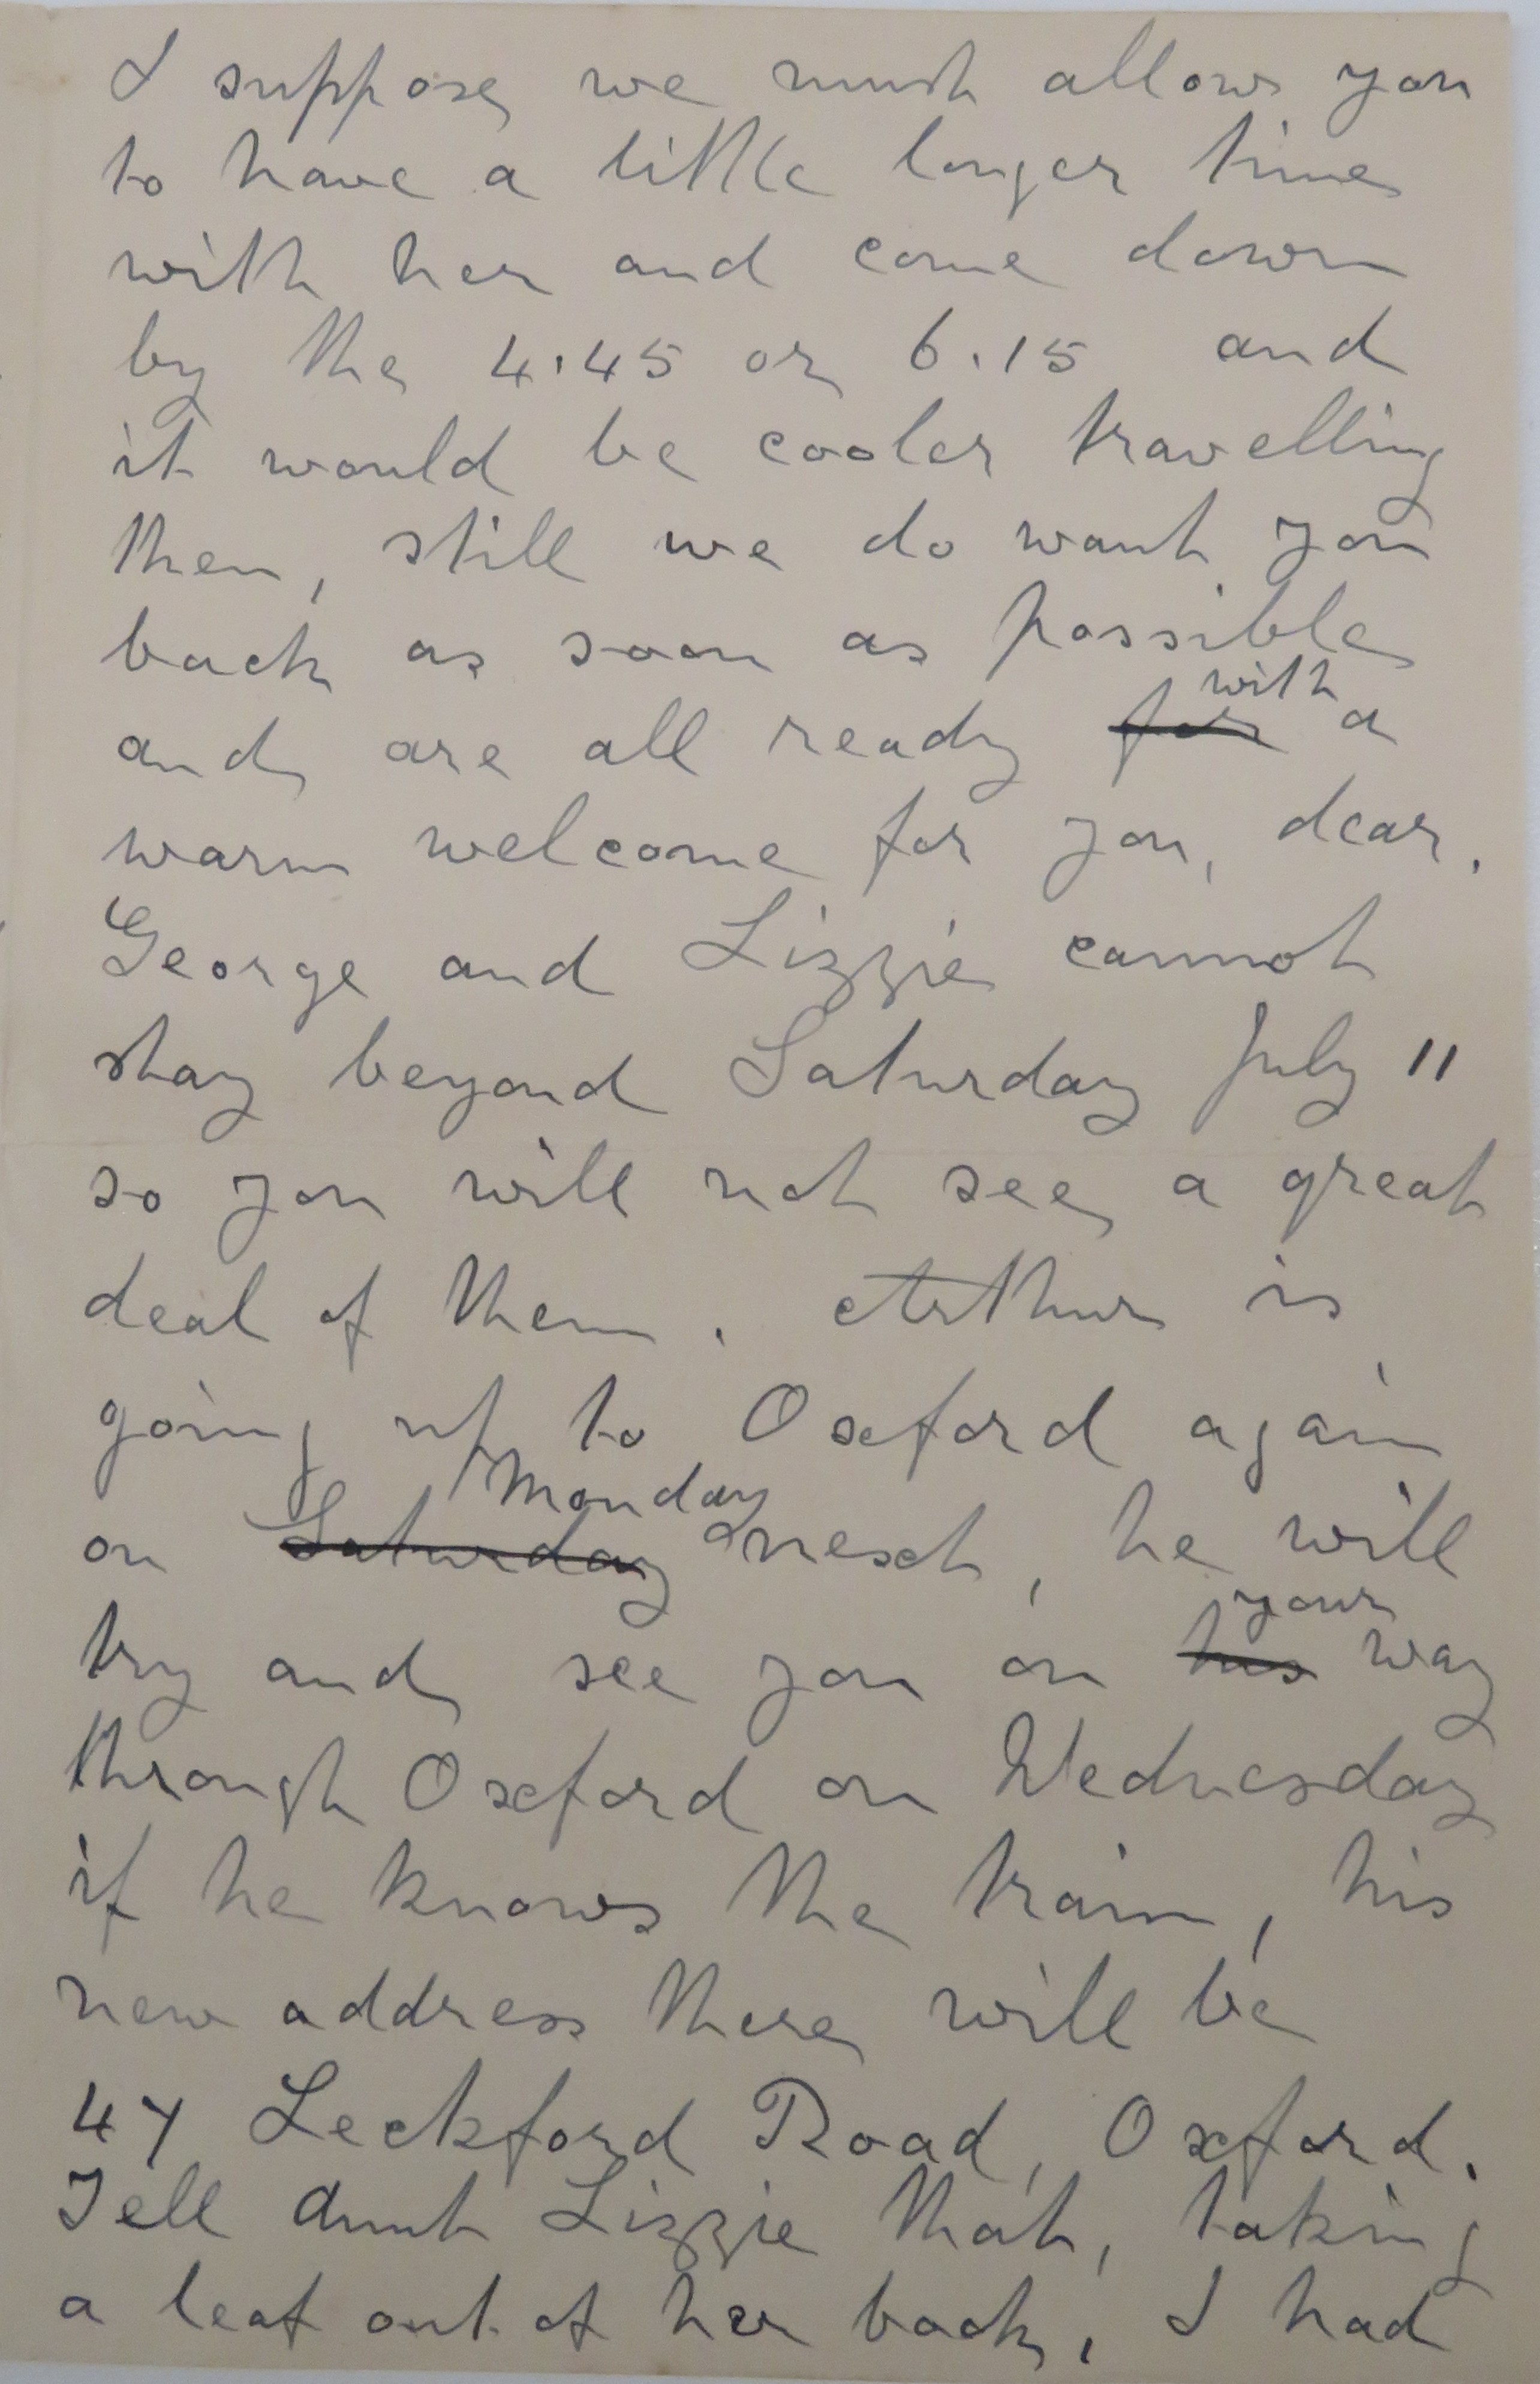 I suppose we must allow you
to have a little longer time
with her and come down
by the 4.45 or 6.15 and
it would be cooler travelling
then, still we do want you
back as soon as possible
and are all ready for with a
warm welcome for you, dear.
George and Lizzie cannot
stay beyond Saturday July 11
so you will not see a great
deal of them. Arthur is
going up to Oxford again
on Saturday Monday next, he will
try and see you on his your way
through Oxford on Wednesday
if he knows the train, his
new address there will be
47 Leckford Road, Oxford.
Tell Aunt Lizzie that, taking
a leaf out of her book, I had